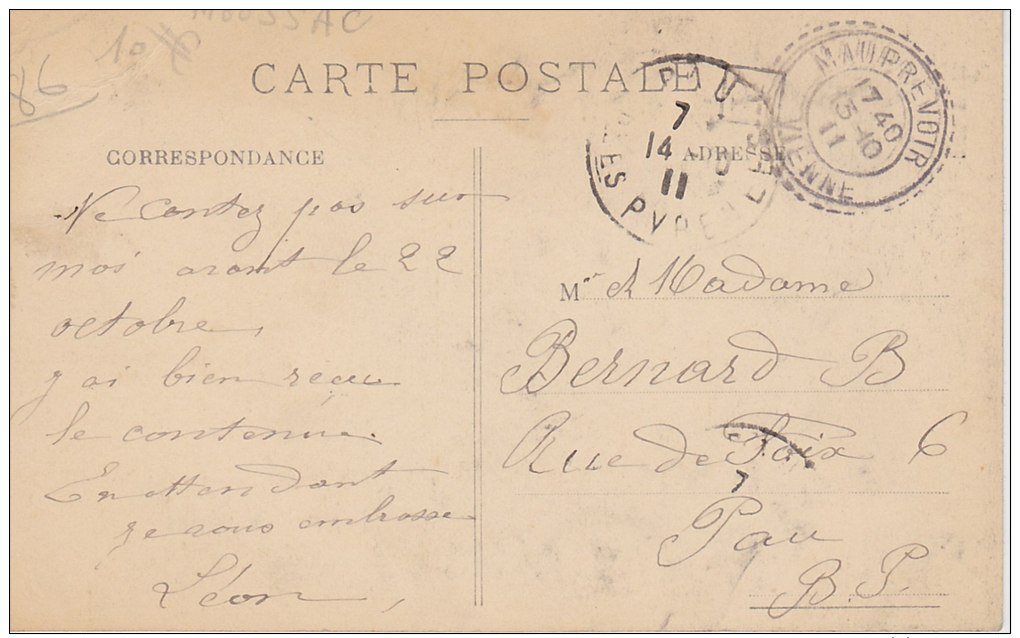 MOUSSAC
10
86
CARTE POSTALE
CORRESPONDANCE
ADRESSE
MAUPREVOIR
17 40
15-10
11
VIENNE
PAU
7
14
11
BSES PYRENEES
Ne contez pas sur
moi avant le 22
octobre,
j ai bien reçu
le contenu.
En attendant
je vous embrasse
Léon,
M r et Madame
Bernard B
Rue de Foix 6
7
Pau
B. P.